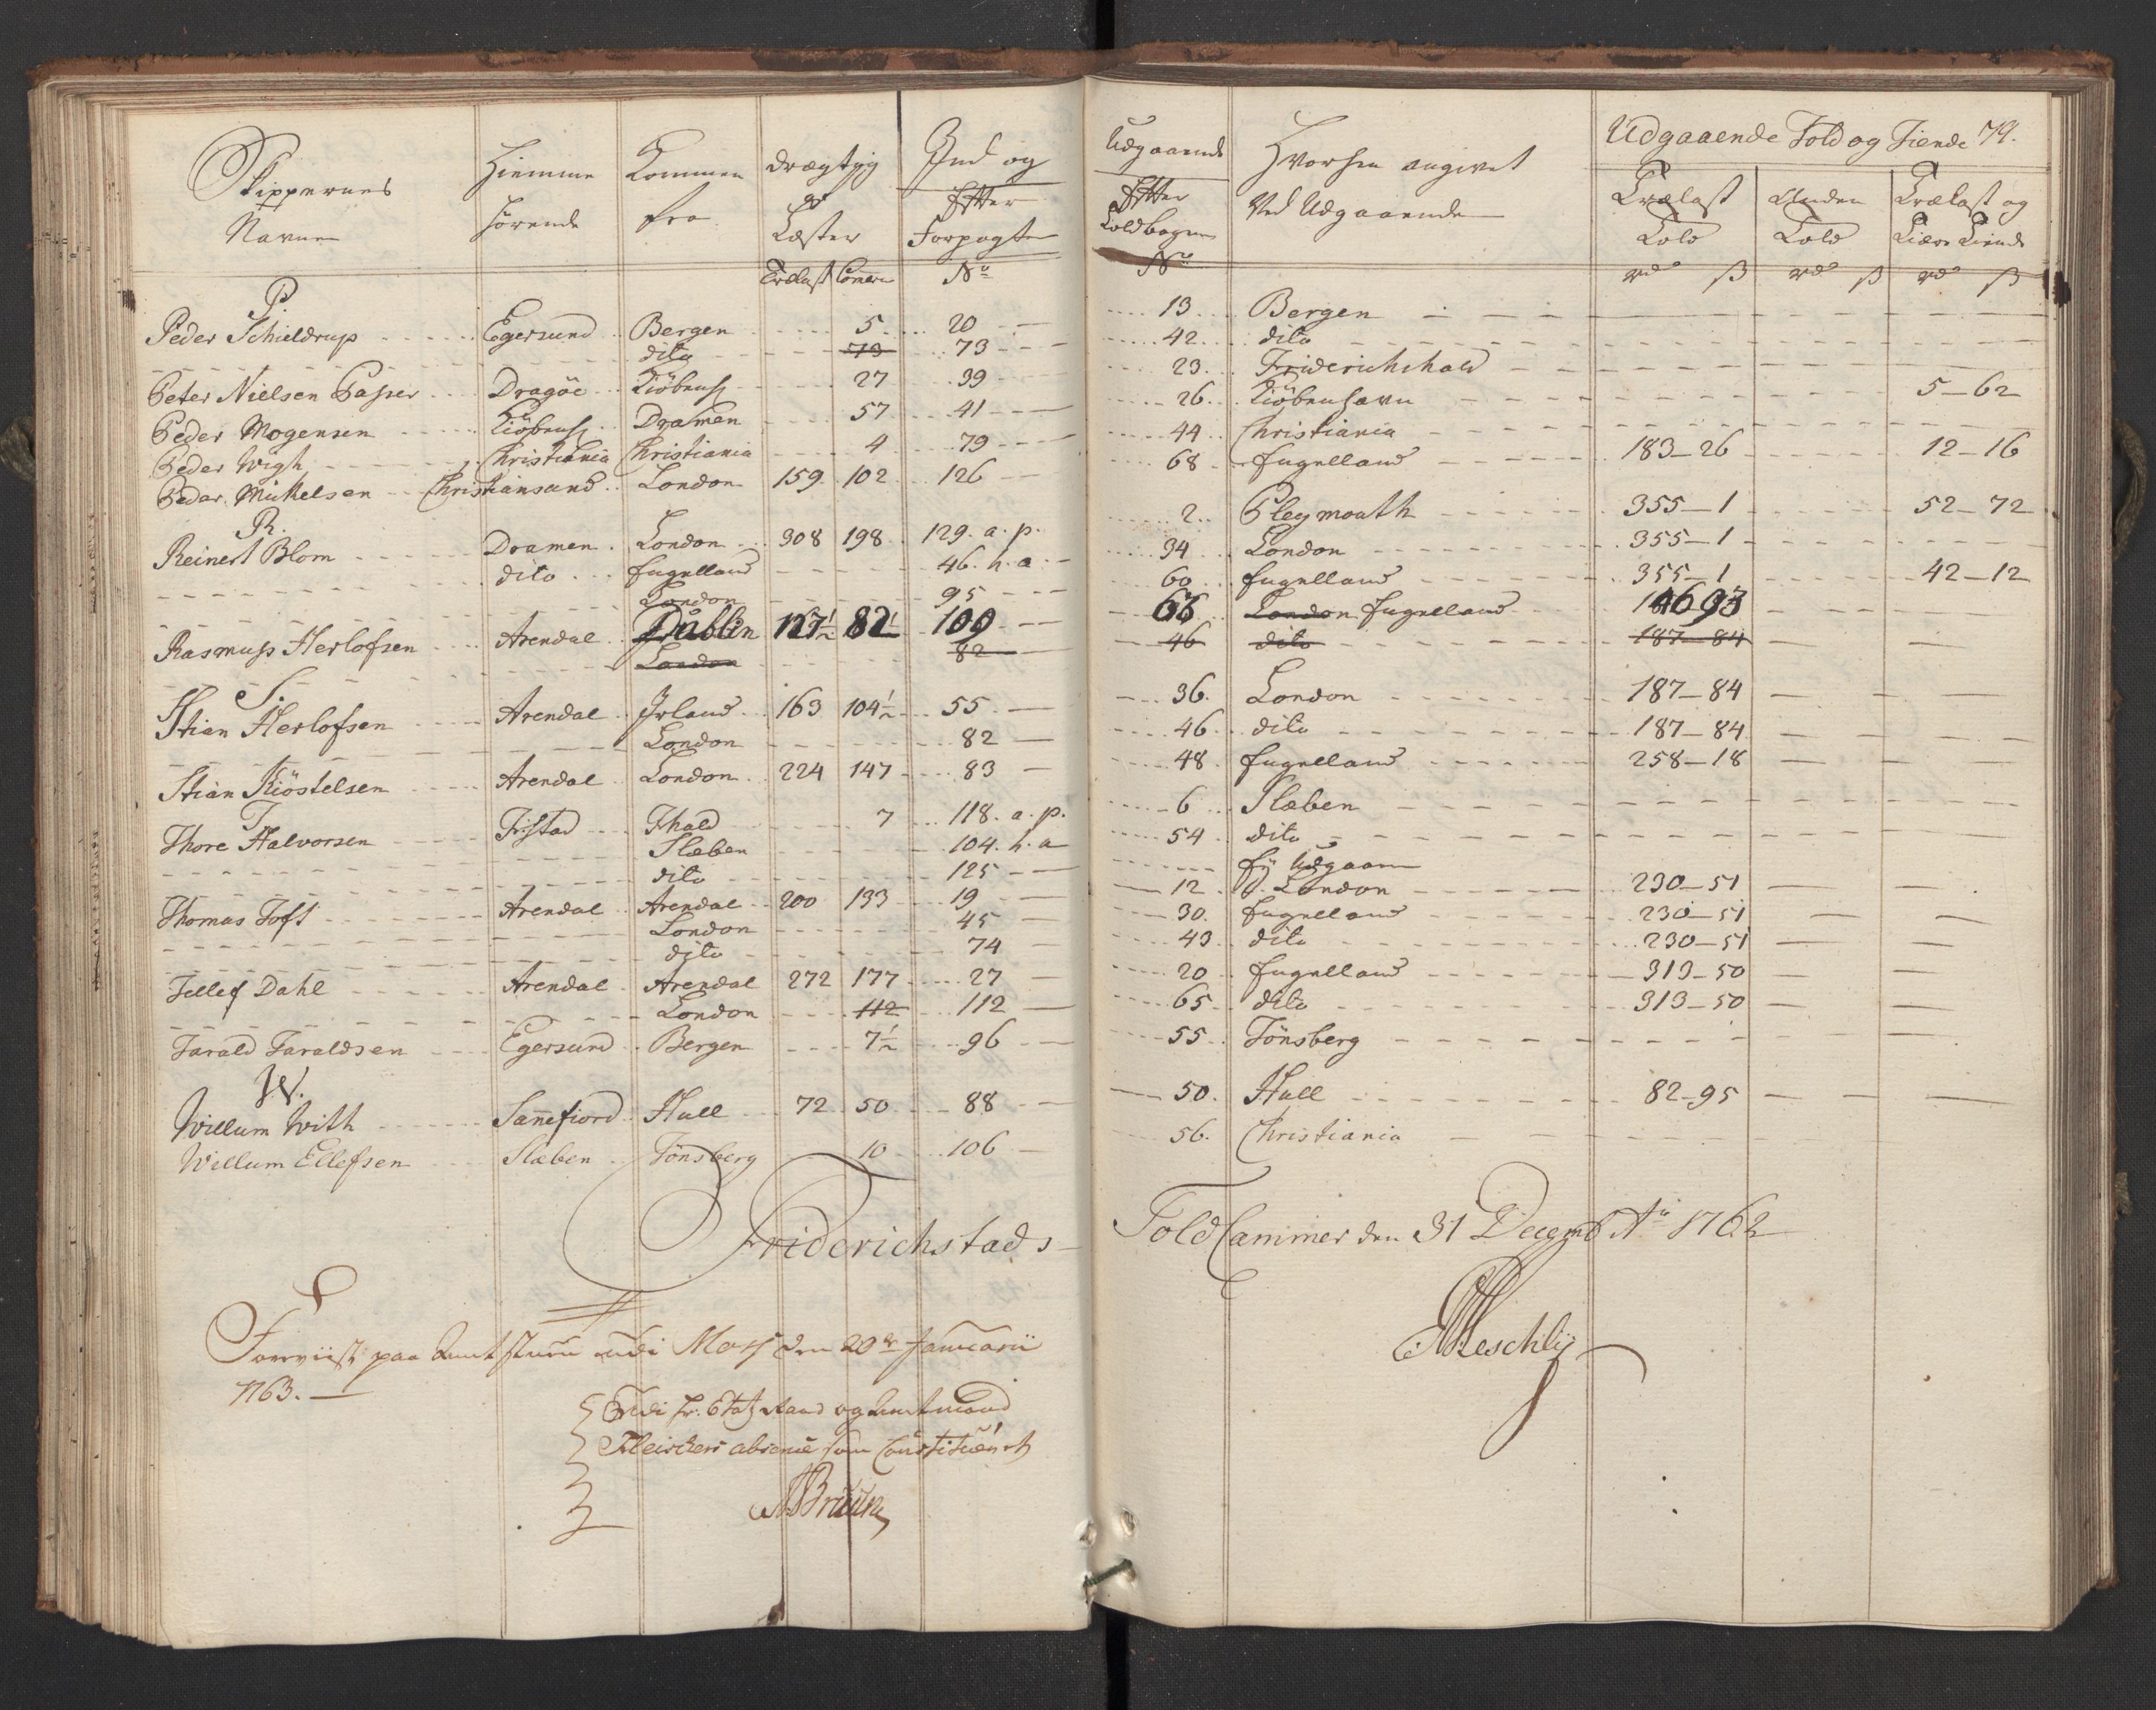 Skippernes Navne | Hiemme hörende | Kommen fra | drægtig Læster | Ind og Efter Forpagter
Trælast | Comerce | No
P.
Peder Schieldrup | Egersund | Bergen | 5 | 20
dito | 73 | 73
Peter Nielsen Passer | Dragöe | Kiöbenh | 27 | 39
Peder Mogensen | Kiöbenh | Dramen | 57 | 41
Peder Wigh | Christiania | Christiania | 4 | 79
Peder Mickelsen | Christiansand | London | 159 | 102 | 126
R.
Reinert Blom | Dramen | London | 308 | 198 | 129. a. p.
dito | Engelland | 46. h. a.
London | 95
Rasmuss Herlofsen | Arendal | Dublin | 127½ | 82½ | 100
London | 82
S.
Stian Herlofsen | Arendal | Irland | 163 | 104½ | 55
London | 82
Stian Kiöstelsen | Arendal | London | 224 | 147 | 83
T.
Thore Halvorsen | Fr:stad | Fhald | 7 | 118. a. p.
Slæben | 104. h. a
dito | 125
Thomas Toft | Arendal | Arendal | 200 | 133 | 19
London | 45
dito | 74
Tellef Dahl | Arendal | Arendal | 272 | 177 | 27
London | 112 | 112
Tarald Taraldsen | Egersund | Bergen | 7½ | 96
W.
Willum With | Sannefiord | Hull | 72 | 50 | 88
Willum Ellefsen | Slæben | Tönsberg | 10 | 106
Friderichstads
Foreviist paa Amtstuen udi Moss den 20de Januarii
1763.
Udi Hr. Etatz Raad og Amtmand
Fleischers absence som Constitueret
Bruun
Udgaaende Efter Toldbogen No | Hvorhen angivet Ved Udgaaende | Udgaaende Told og Tiende 79.
Trælast Told | Anden Told | Trælast og Tiære Tiende
rd ß | rd ß | rd ß
13 | Bergen
42 | dito
23 | Friderichshald
26 | Kiöbenhavn | 5-62
44 | Christiania
68 | Engelland | 183-26 | 12-16
2 | Pleymouth | 355-1 | 52-72
34 | London | 355-1
60 | Engelland | 355-1 | 42-12
66 | London Engelland | 146 93
46 | dito | 187-84
36 | London | 187-84
46 | dito | 187-84
48 | Engelland | 258-18
6 | Slæben
54 | dito
Ej Udgaaen
12 | London | 230-51
30 | Engelland | 230-51
43 | dito | 230-51
20 | Engelland | 313-50
65 | dito | 313-50
55 | Tönsberg
50 | Hull | 82-95
56 | Christiania
Told Cammer den 31 Decemb Ao 1762